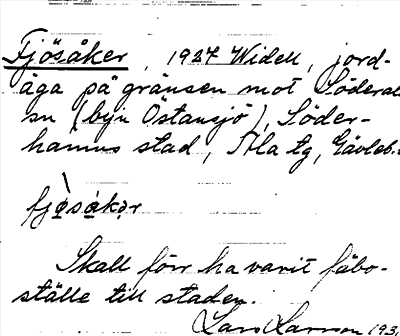 Fjösåker, 1927 Widell, jord-
äga på gränsen mot Söderal
sn (byn Östansjö), Söder-
hamns stad, Ala tg, Gävleb.
fjø̀sákə̣r
Skall förr ha varit fäbo-
ställe till staden.
Lars Larsson 193